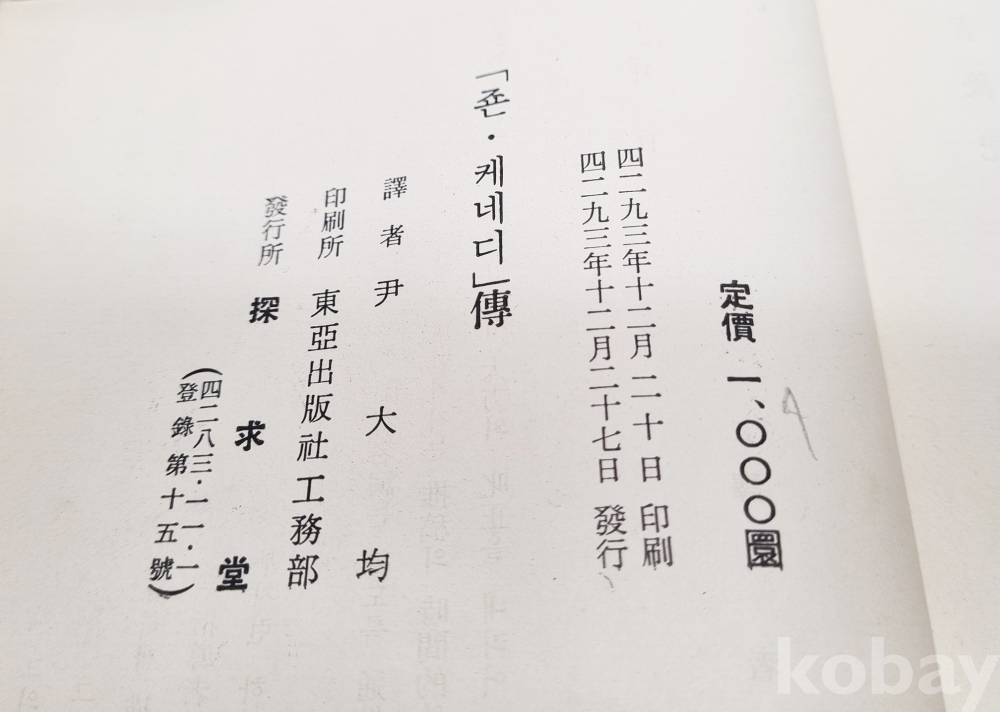 定價 一、〇〇〇圜
四二九三年十二月二十日 印刷
四二九三年十二月二十七日 發行
「죤・케네디」傳
譯者 尹大均
印刷所 東亞出版社工務部
發行所 探求堂
(四二八三・一一・一
登錄第十五號)
kobay